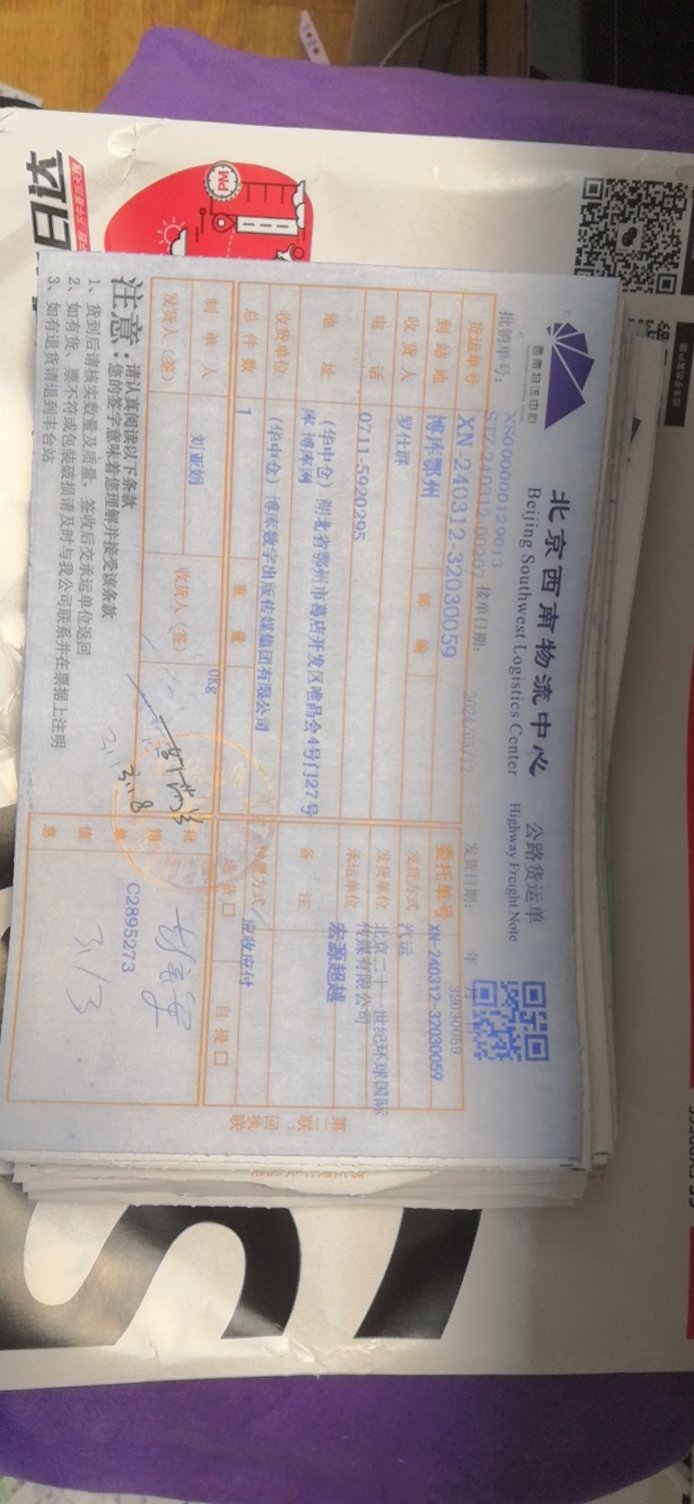 西南物流中心
北京西南物流中心
公路货运单
Beijing Southwest Logistics Center
Highway Freight Note
批销单号：
XS000000129013
STZ-240312-00207
接单日期：
2024/03/12
发货日期：
年 月 日
32030059
货运单号
XN-240312-32030059
委托单号
XN-240312-32030059
到站地
博库鄂州
邮 编
发货方式
汽运
收货人
罗仕群
发货单位
北京二十一世纪环球国际
传媒有限公司
电 话
0711-5920295
承运单位
宏源超越
地 址
(华中仓) 湖北省鄂州市葛店开发区唯品会4号门27号
库 博库网
备 注
收货单位
(华中仓) 博库数字出版传媒集团有限公司
付费方式
应收应付
总件数
1
重 量
0Kg
送 货 口
自 提 口
制 单 人
刘亚娟
收货人（签）
发货人（签）
批
销
单
信
息
C2895273
3.18
3/13
注意：
请认真阅读以下条款
您的签字意味着您理解并接受该条款
1、货到后请核实数量及质量，签收后交承运单位返回
2、如有货、票不符或包装破损请及时与我公司联系并在票据上注明
3、如有退货请退到丰台站
第二联：回执联
日达
PM